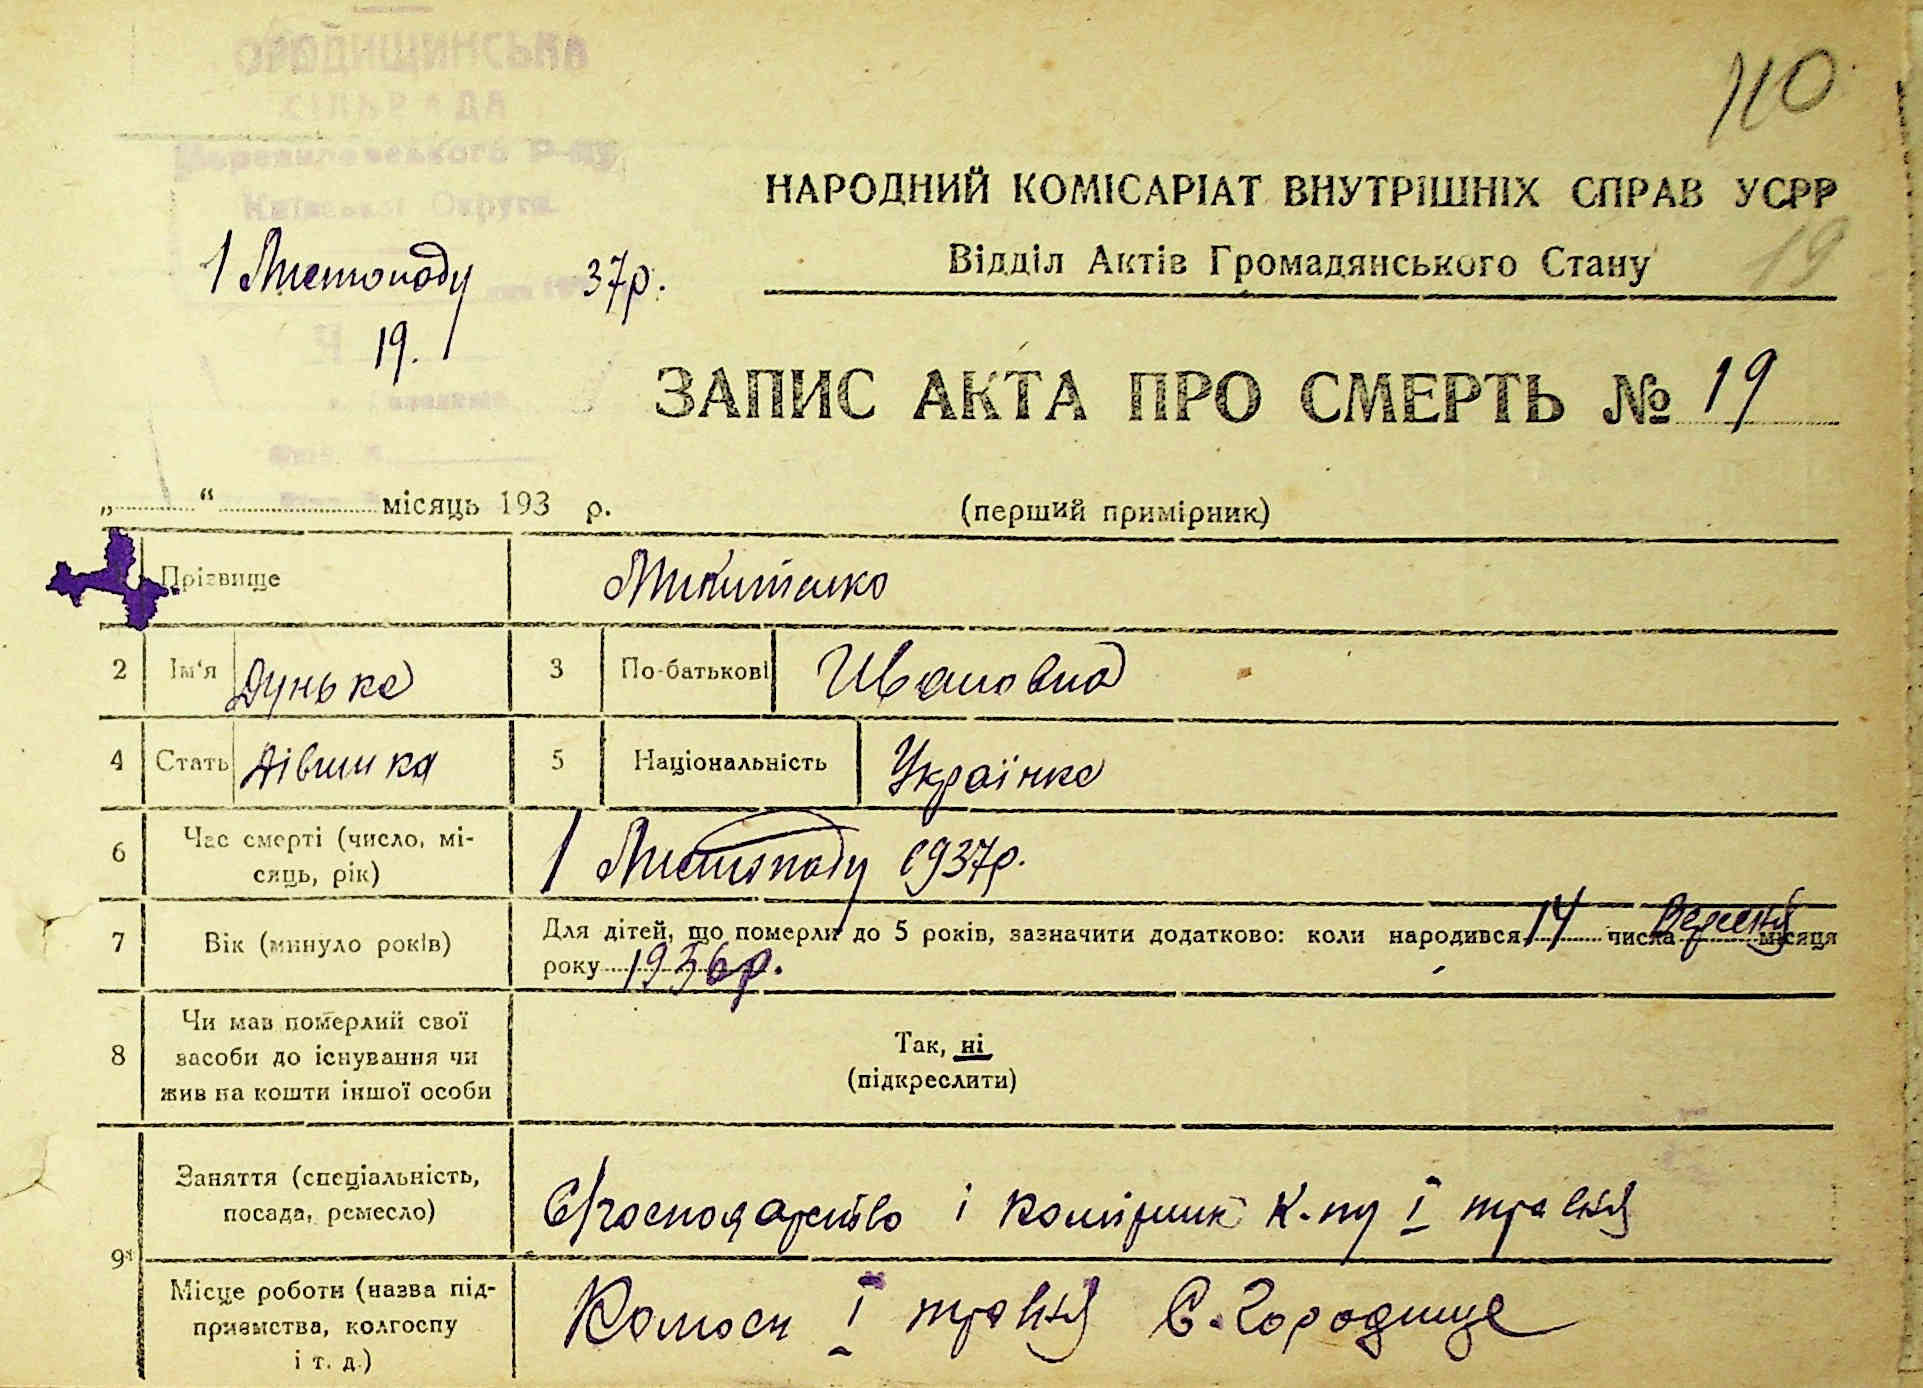 ОРОДИЩИНСЬКА
СІЛЬРАДА
Київської Округи
110
НАРОДНИЙ КОМІСАРІАТ ВНУТРІШНІХ СПРАВ УСРР
Відділ Актів Громадянського Стану
19
1 Листопаду 37р.
19.
ЗАПИС АКТА ПРО СМЕРТЬ № 19
„ “ місяць 193 р.
(перший примірник)
Прізвище Микитенко
2 Ім'я Дунька 3 По-батькові Ивановна
4 Стать Дівчинка 5 Національність Українка
6 Час смерті (число, мі-
сяць, рік) 1 Листопаду 1937р.
7 Вік (минуло років) Для дітей, що померли до 5 років, зазначити додатково: коли народився 14 числа Вересня місяця
року 1936р.
8 Чи мав померлий свої
засоби до існування чи
жив на кошти іншої особи
Так, ні
(підкреслити)
9 Заняття (спеціальність,
посада, ремесло) С/господарство і комірник К-пу І травня
Місце роботи (назва під-
приємства, колгоспу
і т. д.) І травня С. Городище